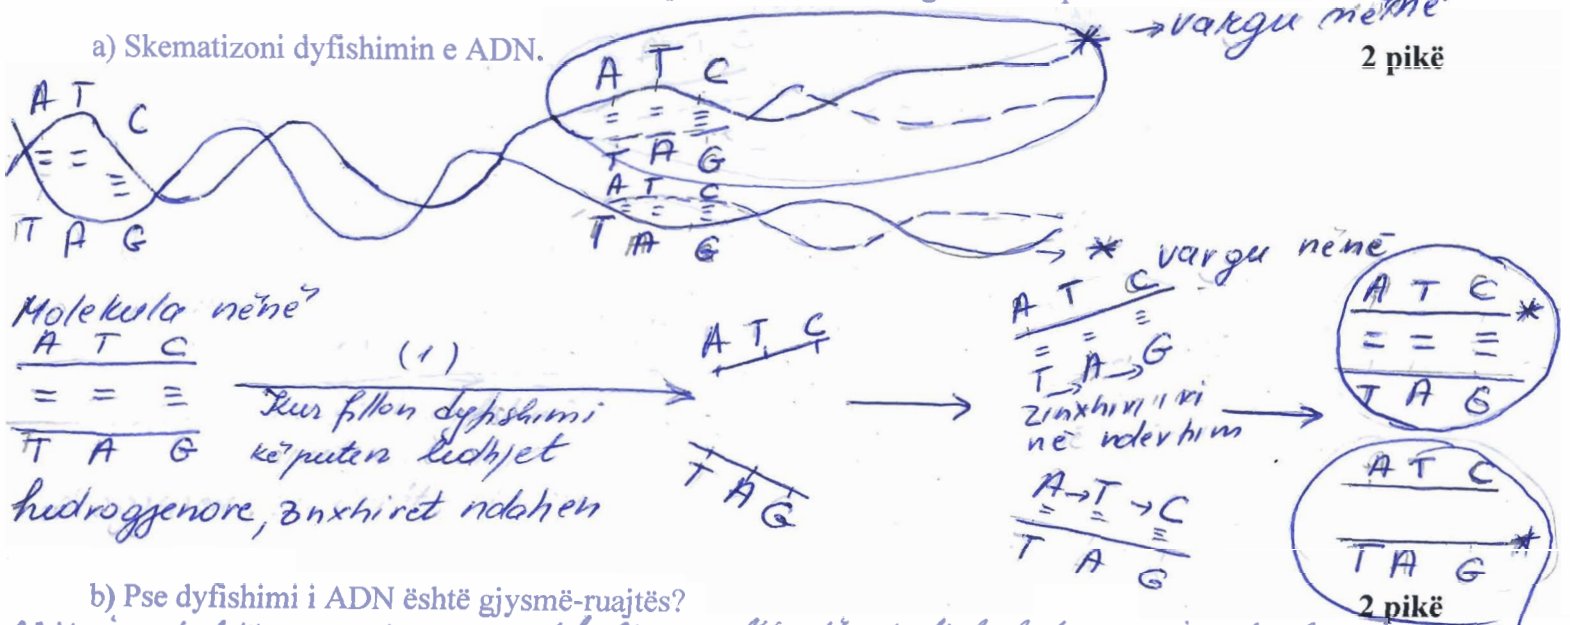 → vargu nënë
a) Skematizoni dyfishimin e ADN.
2 pikë
A T C
T A G
A T C
T A G
A T C
T A G
→ * vargu nënë
Molekula nënë
A T C
T A G
(1)
Kur fillon dyfishimi
këputen lidhjet
hidrogjenore, zinxhiret ndahen
A T C
T A G
A T C
T → A → G
zinxhiri i ri
në ndërtim
A → T → C
T A G
A T C *
T A G
A T C
T A G *
b) Pse dyfishimi i ADN është gjysmë-ruajtës?
2 pikë